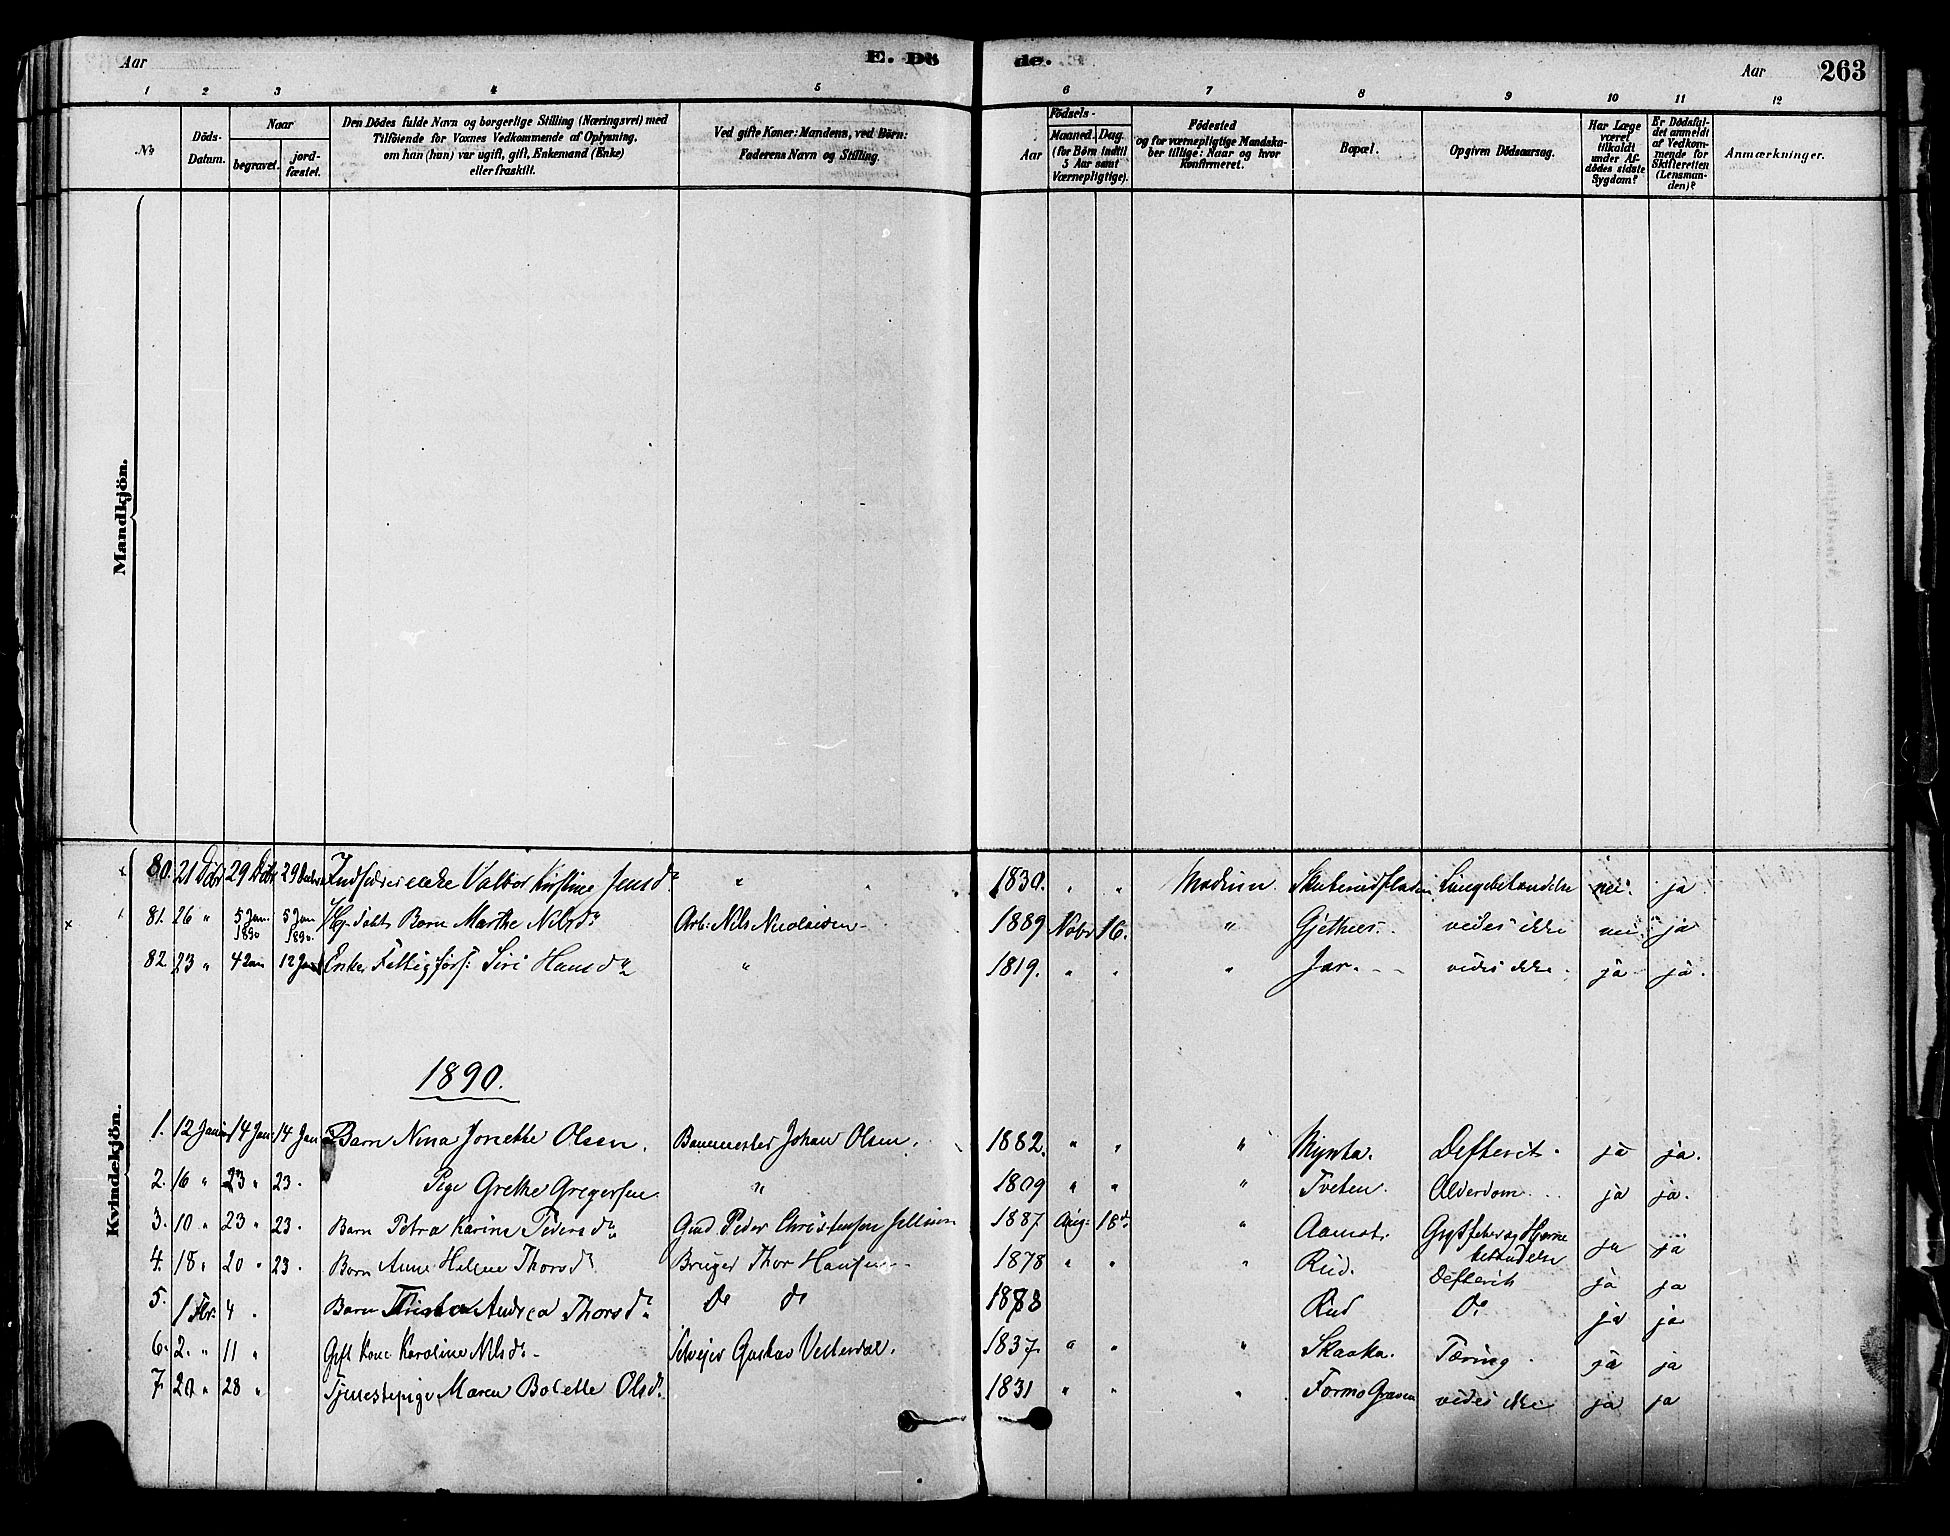 Aar E. Dö de. Aar 263
1 2 3 4 5 6 7 8 9 10 11 12
No. Döds-Datum. Naar begravet. jordfæstet. Den Dödes fulde Navn og borgerlige Stilling (Næringsvei) med Tilföiende for Voxnes Vedkommende af Oplysning, om han (hun) var ugift, gift, Enkemand (Enke) eller fraskilt. Ved gifte Koner: Mandens, ved Börn: Faderens Navn og Stilling. Aar Födsels- Maaned. Dag. (for Börn indtil 5 Aar samt Værnepligtige). Födested og for værnepligtige Mandskaber tillige: Naar og hvor konfirmeret. Bopæl. Opgiven Dödsaarsag. Har Læge været tilkaldt under Afdödes sidste Sygdom? Er Dödsfaldet anmeldt af Vedkommende for Skifteretten (Lensmanden)? Anmærkninger.
Mandkjön.
Kvindekjön.
80. 21 Dbr 29 Dbr 29 Indsidderenke Valbor Kirstine Jensdr " 1830. " " Modum. Lungebetændelse nei. ja
81. 26 " 5 Jan. 1890 5 Jan 1890. Hj. døbt Barn Marthe Nilsdr Arb: Nils Nicolaisen 1889 Novbr 16. " Gjethus. vides ikke nei. ja
82 23 " 4 Jan 12 Jan Enke Fattigfors: Siri Hansdr " 1819. " " " Jar. vides ikke. ja ja.
1890.
1. 12 Januar 14 Jan 14 Jan Barn Nina Jonette Olsen. Banemester Johan Olsen. 1882. " " " Mysta. Defterit. ja ja.
2. 16 " 23 " 23. Pige Grethe Gregersen " 1809 " " " Tveten. Alderdom. ja ja.
3. 10 " 23 " 23. Barn Petra Karine Pedersdr Gmd Peder Christensen 1887 Aug: 18. " Aamot. og Hjernebetændelse ja ja
4. 18 " 20 " 23. Barn Anne Helene Thorsdr Bruger Thor Hansen 1878 " " " Rud. Defterit ja ja
5. 1 Fbr. 4 " Barn Andrea Thorsdr Do do 1883 Rud Do ja ja
6. 2. " 11 " Gift Kone Karoline Nilsdr Selveier Gustav Vesterdal. 1837. " " " Skaaka. Tæring. ja ja
7. 20 " 28 " Tjenestepige Maren Bolette Olsdr. 1831 " " " Formo Graven vides ikke ja ja